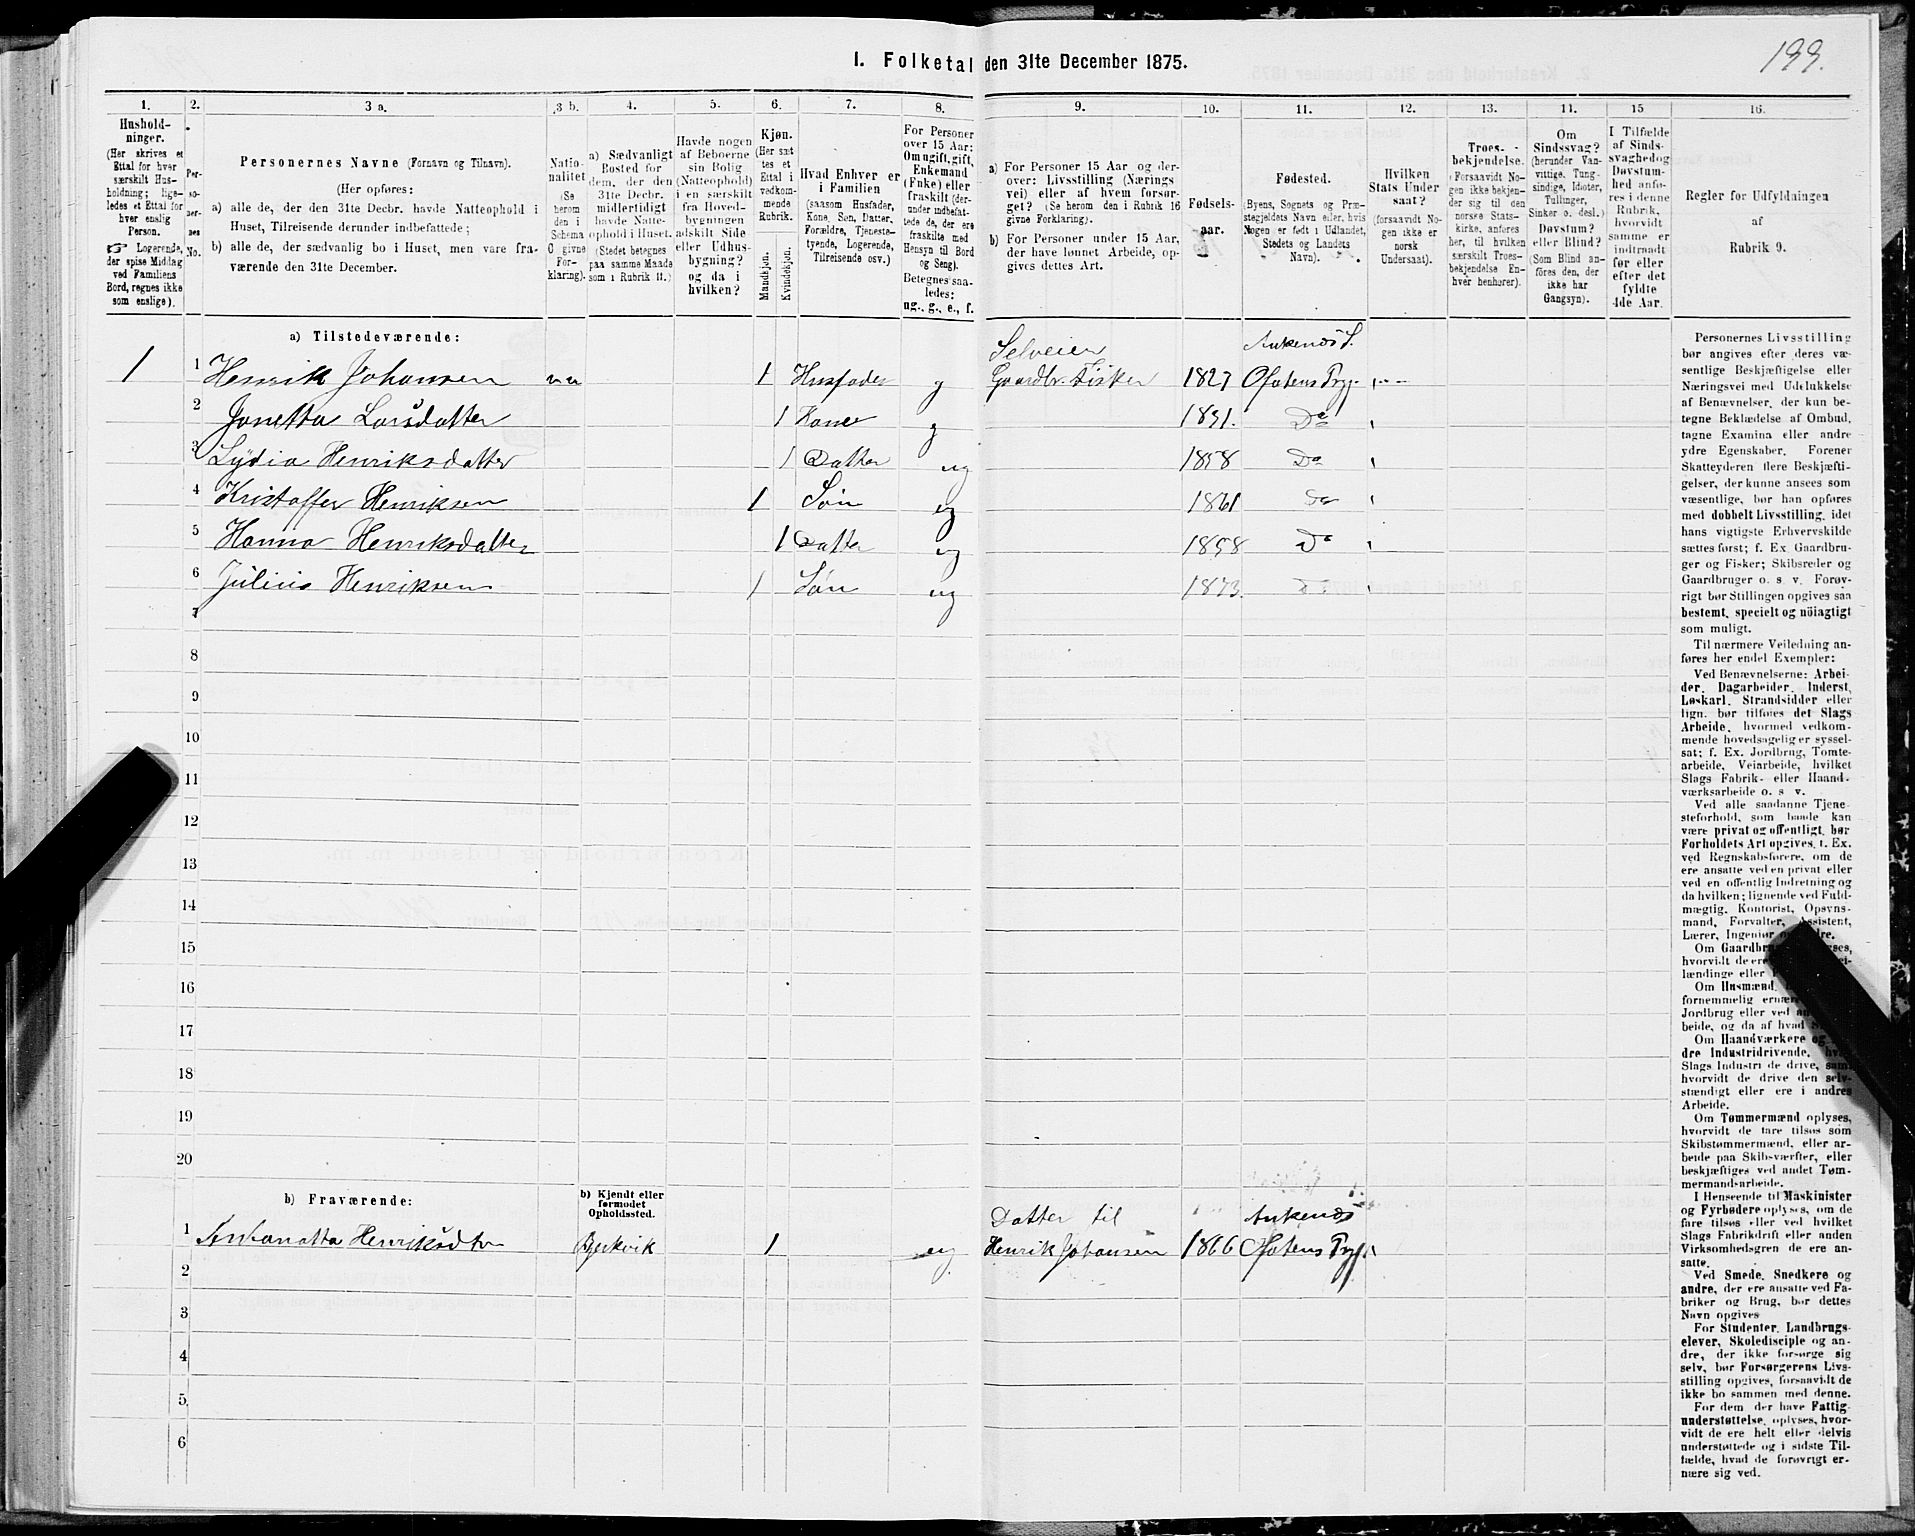 199.
I. Folketal den 31te December 1875.
1.
2.
3 a.
3 b.
4.
5.
6.
7.
8.
9.
10.
11.
12.
13.
14.
15
16.
Hushold-
ninger.
(Her skrives et
Ettal for hver
særskilt Hus-
holdning; lige-
ledes et Ettal for
hver enslig
Person.
☞ Logerende,
der spise Middag
ved Familiens
Bord, regnes ikke
som enslige).
Per-
so-
ner-
nes
No.
Personernes Navne (Fornavn og Tilnavn).
(Her opføres:
a) alle de, der den 31te Decbr. havde Natteophold i
Huset, Tilreisende derunder indbefattede;
b) alle de, der sædvanlig bo i Huset, men vare fra-
værende den 31te December.
Natio-
nalitet
(Se
herom
den i
Schema
C givne
For-
klaring).
a) Sædvanligt
Bosted for
dem, der den
31te Decbr.
midlertidigt
havde Natte-
ophold i Huset.
(Stedet betegnes
paa samme Maade
som i Rubrik 11.)
Havde nogen
af Beboerne
sin Bolig
(Natteophold)
i en særskilt
fra Hoved-
bygningen
adskilt Side
eller Udhus-
bygning?
og da i
hvilken?
Kjøn.
(Her sæt
tes et
Ettal i
vedkom-
mende
Rubrik.
Mandkjøn.
Kvindekjøn.
Hvad Enhver er
i Familien
(saasom Husfader,
Kone, Søn, Datter,
Forældre, Tjeneste-
tyende, Logerende,
Tilreisende osv.)
For Personer
over 15 Aar:
Om ugift, gift,
Enkemand
(Enke) eller
fraskilt (der-
under indbefat-
tede de, der ere
fraskilte med
Hensyn til Bord
og Seng).
Betegnes saa-
ledes:
ug., g., e., f.
a) For Personer 15 Aar og der-
over: Livsstilling (Nærings
vei) eller af hvem forsør-
get? (Se herom den i Rubrik 16
givne Forklaring).
b) For Personer under 15 Aar,
der have lønnet Arbeide, op-
gives dettes Art.
Fødsels-
aar.
Fødested.
(Byens, Sognets og Præ-
stegjeldets Navn eller, hvis
Nogen er født i Udlandet,
Stedets og Landets
Navn).
Hvilken
Stats Under
saat?
(forsaavidt No-
gen ikke er
norsk
Undersaat).
Troes-
bekjendelse.
(Forsaavidt No-
gen ikke bekjen-
der sig til den
norske Stats-
kirke, anføres
her, til hvilken
særskilt Troes-
bekjendelse En-
hver henhører).
Om
Sindssvag?
(herunder Van-
vittige, Tung-
sindige, Idioter,
Tullinger,
Sinker o. desl.)
Døvstum?
eller Blind?
(Som Blind an-
føres den, der
ikke har
Gangsyn).
I Tilfælde
af Sinds-
svaghedog
Døvstum-
hed anfø-
res i denne
Rubrik,
hvorvidt
samme er
indtraadt
før eller
efter det
fyldte
4de Aar.
Regler for Udfyldningen
af
Rubrik 9.
a) Tilstedeværende:
1 1 Henrik Johansen nn 1 Husfader g Selveier Gaardbr. Fisker 1827 Ankenæs S. Ofotens Prgj.
2 Janetta Larsdatter 1 Kone g 1831. Do
3 Lydia Henriksdatter 1 Datter ug 1858 Do
4 Kristoffer Henriksen 1 Søn ug 1861 Do
5 Hanna Henriksdatter 1 Datter ug 1858 Do
6 Julius Henriksen 1 Søn ug 1873. Do
7
8
9
10
11
12
13
14
15
16
17
18
19
20
b) Fraværende:
b) Kjendt eller
formodet
Opholdssted.
1 Antonatta Henriksdtr Bjerkvik 1 ug Datter til Henrik Johansen 1866 Ankenæs Ofotens Prgj.
2
3
4
5
6
Personernes Livsstilling
bør angives efter deres væ-
sentlige Beskjæftigelse eller
Næringsvei med Udelukkelse
af Benævnelser, der kun be-
tegne Beklædelse af Ombud,
tagne Examina eller andre
ydre Egenskaber. Forener
Skatteyderen flere Beskjæfti-
gelser, der kunne ansees som
væsentlige, bør han opføres
med dobbelt Livsstilling, idet
hans vigtigste Erhvervskilde
sættes først; f. Ex. Gaardbru-
ger og Fisker; Skibsreder og
Gaardbruger o. s. v. Forøv-
rigt bør Stillingen opgives saa
bestemt, specielt og nöiagtigt
som muligt.
Til nærmere Veiledning an-
føres her endel Exempler:
Ved Benævnelserne: Arbei-
der, Dagarbeider, Inderst,
Løskarl, Strandsidder eller
lign. bør tilføies det Slags
Arbeide, hvormed vedkom-
mende hovedsagelig er syssel-
sat; f. Ex. Jordbrug, Tomte-
arbeide, Veiarbeide, hvilket
Slags Fabrik- eller Haand-
værksarbeide o. s v.
Ved alle saadanne Tjene-
steforhold, som baade kan
være privat og offentligt, bør
Forholdets Art opgives, f. Ex.
ved Regnskabsførere, om de
ere ansatte ved en privat eller
ved en offentlig Indretning og
da hvilken; lignende ved Fuld-
mægtig, Kontorist, Opsyns-
mand, Forvalter, Assistent,
Lærer, Ingeniør
Om
hvorvidt de ere
lændinge eller
Om Husmænd,
fornemmelig
Jordbrug eller ved
beide, og da af hvad
Om Haandværkere og
dre Industridrivende,
Slags Industri de drive,
hvorvidt de drive den selv-
stændigt eller ere i andres
Arbeide.
Om Tømmermænd oplyses,
hvorvidt de fare tilsøs som
Skibstømmermænd, eller ar-
beide paa Skibsværfter, eller
beskjæftiges ved andet Tøm-
mermandsarbeide.
I Henseende til Maskinister
og Fyrbødere oplyses, om de
fare tilsøs eller ved hvilket
Slags Fabrikdrift eller anden
Virksomhedsgren de ere an-
satte.
Ved Smede, Snedkere og
andre, der ere ansatte ved Fa-
briker og Brug, bør dettes
Navn opgives
For Studenter, Landbrugs-
elever, Skoledisciple og an-
dre, der ikke forsørge sig
selv, bør Forsørgerens Livs-
stilling opgives, forsaavidt de
ikke bo sammen med denne.
For dem, der have Fattig-
understøttelse, oplyses, hvor-
vidt de ere helt eller delvis
understøttede og i sidste Til-
fælde, hvad de forøvrigt er-
nære sig ved.